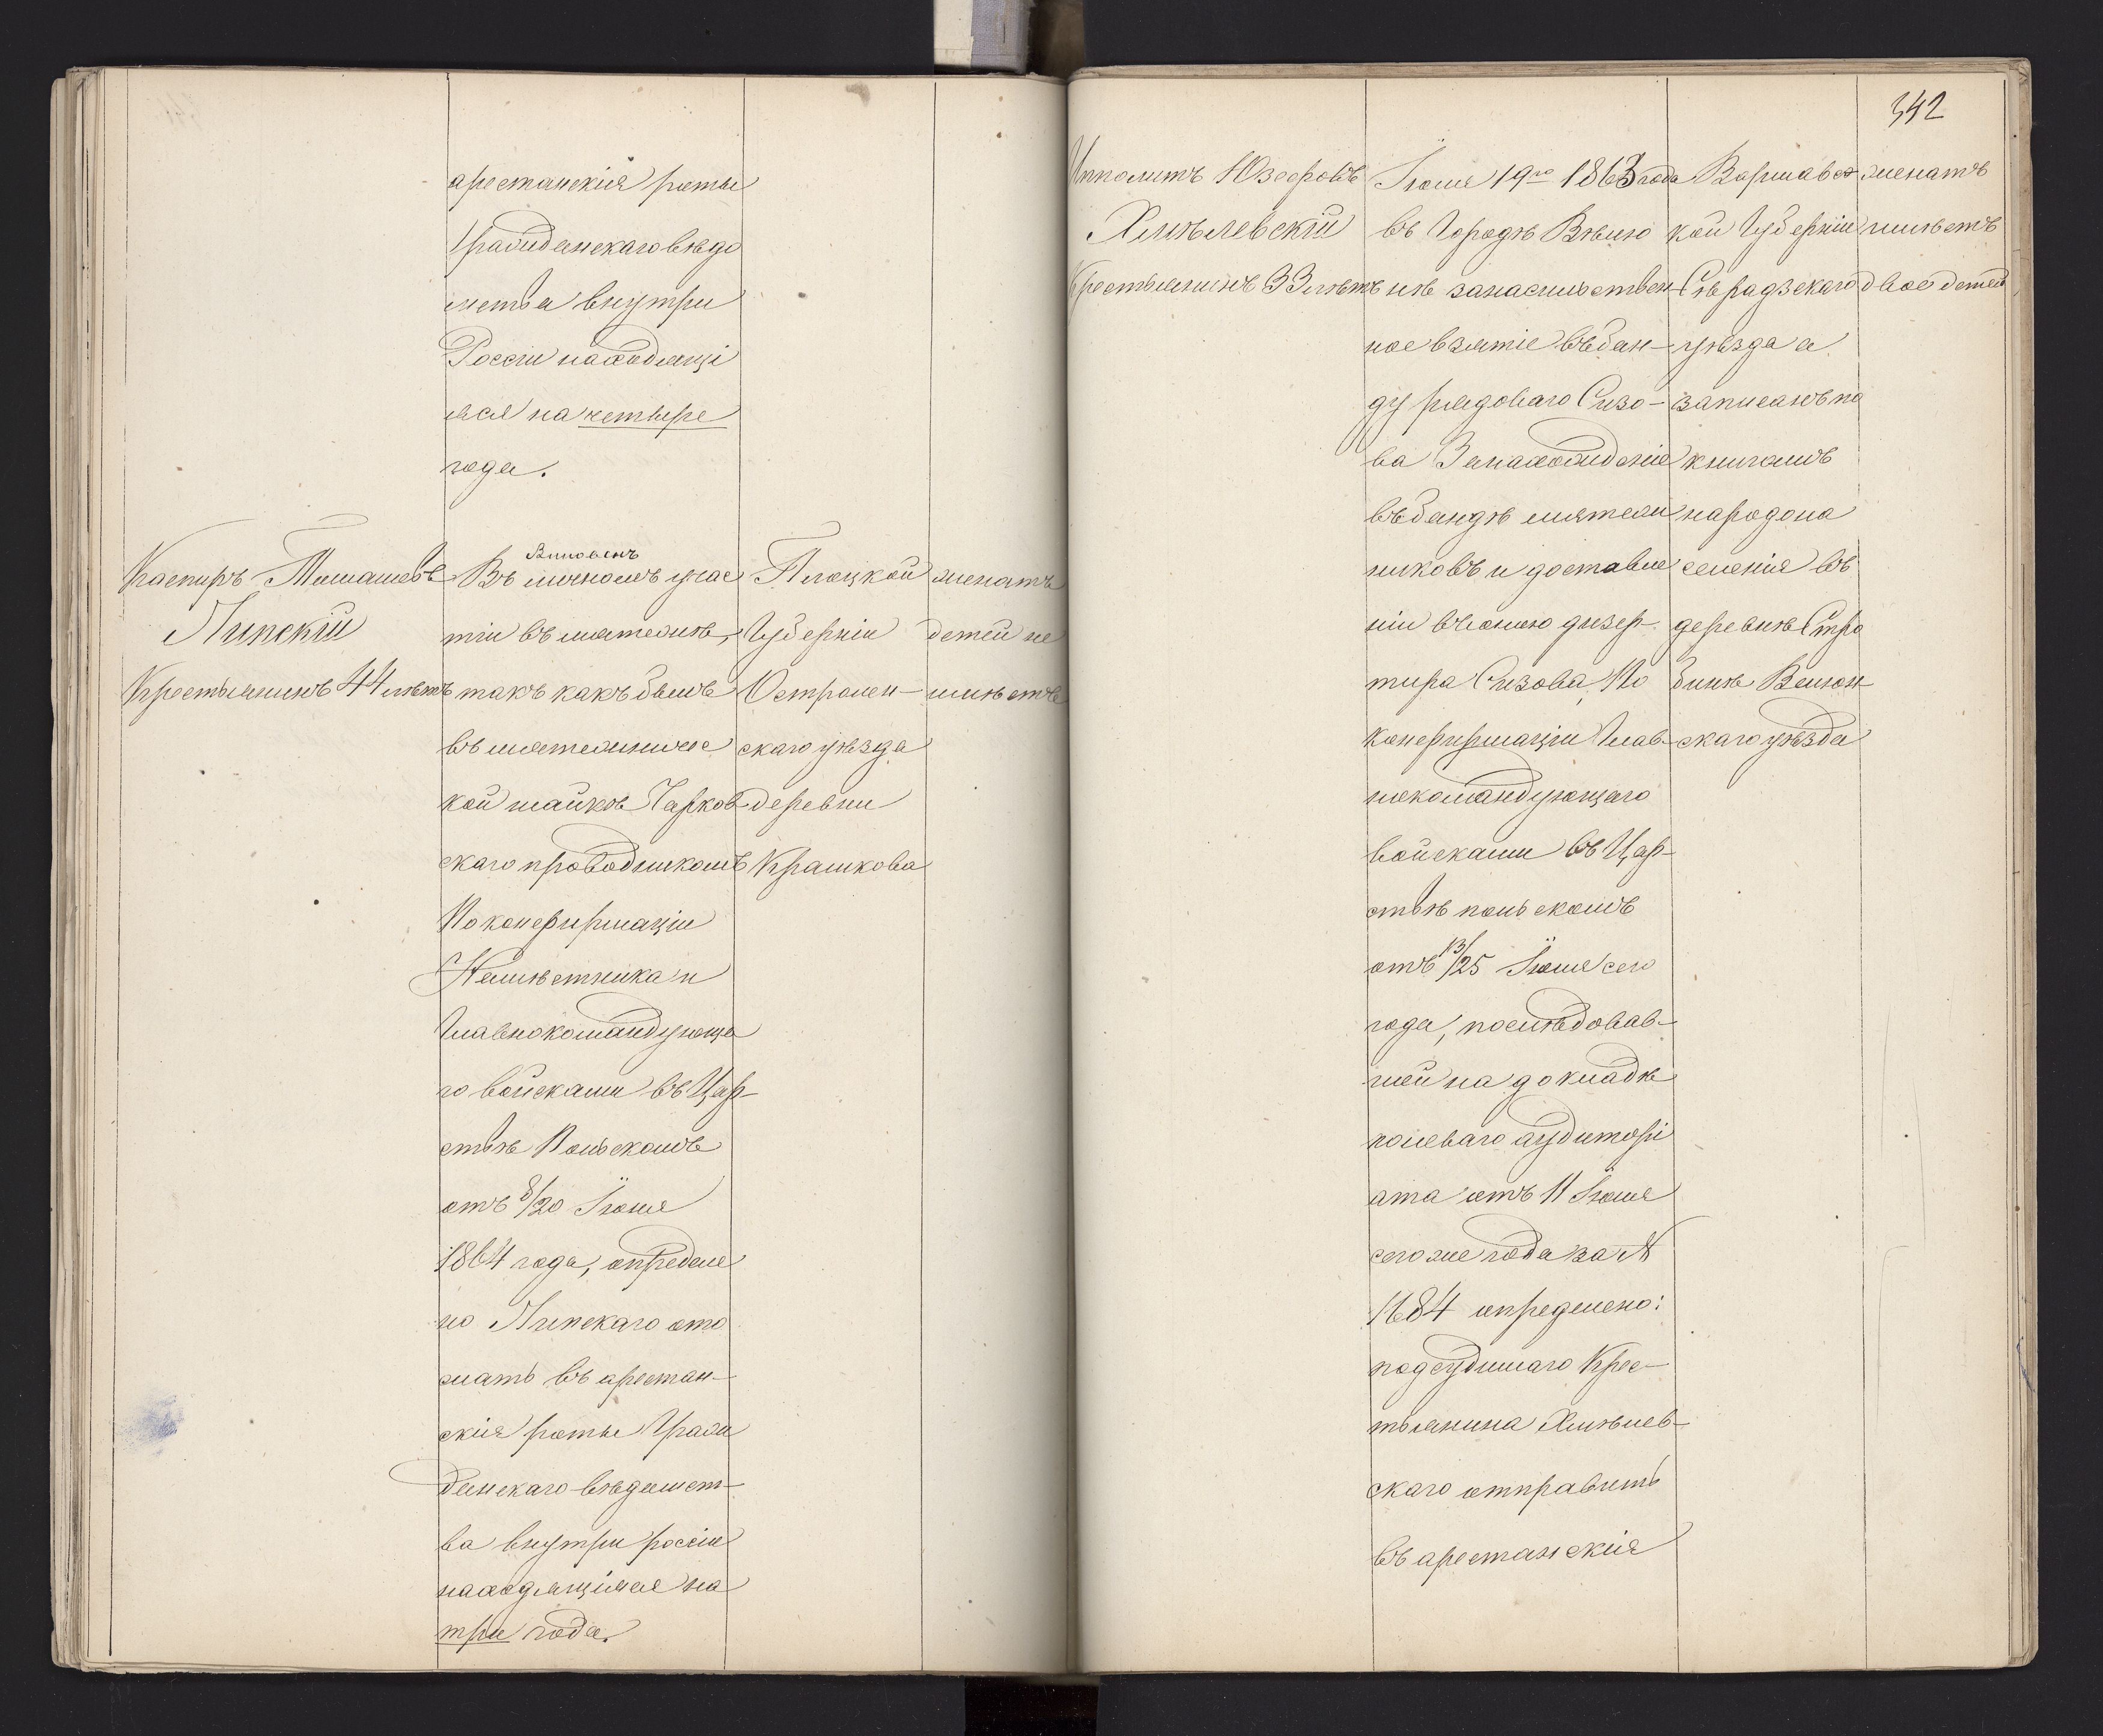 арестанскія роты
гражданскаго ведо
мства внутри
России находящі
яся на четыре
года.
Каспиръ Томашевъ
Липскій
Крестьянинъ 44 летъ
Виновенъ
Въ личномъ учас
тіи въ мятеже,
такъ какъ былъ
въ мятежничес
кой шайке Чарков
скаго проводникомъ
По конфирмаціи
Наместника и
Главнокомандующа
го войсками въ Цар-
стве Польскомъ
отъ 8/20 Іюня
1864 года, определе
но Липскаго ото
слать въ арестан-
скія роты Граж
данскаго ведомст-
ва внутри россіи
находящіяся на
три года.
Плоцкой
Губерніи
Остролен-
скаго уезда
деревни
Крашкова
женатъ
детей не
имеетъ
342
Ипполитъ Юзефовъ
Хмелевскій
Крестьянинъ 33 летъ
Іюля 19го 1863 года
въ Городе Велю
не за насильствен
ное взятіе въ бан-
ду рядоваго Сизо-
ва За нахожденіе
въ банде мятеж
никовъ и доставле
ніи въ оною дизер-
тира Сизова, По
конфирмаціи Глав-
нокомандующаго
войсками въ Цар-
стве польскомъ
отъ 13/25 Іюня сего
года, последовав-
шей на докладе
полеваго аудиторі
ата отъ 11 Іюня
сего же года за №
1684 определено:
подсудимаго Крес-
тьянина Хмелев-
скаго отправить
въ арестанскія
Варшавс
кой Губерніи
Серадзскаго
уезда а
записанъ по
книгамъ
народона
селенія въ
деревне Стро
бине Велюн-
скаго уезда
женатъ
имеетъ
двое детей